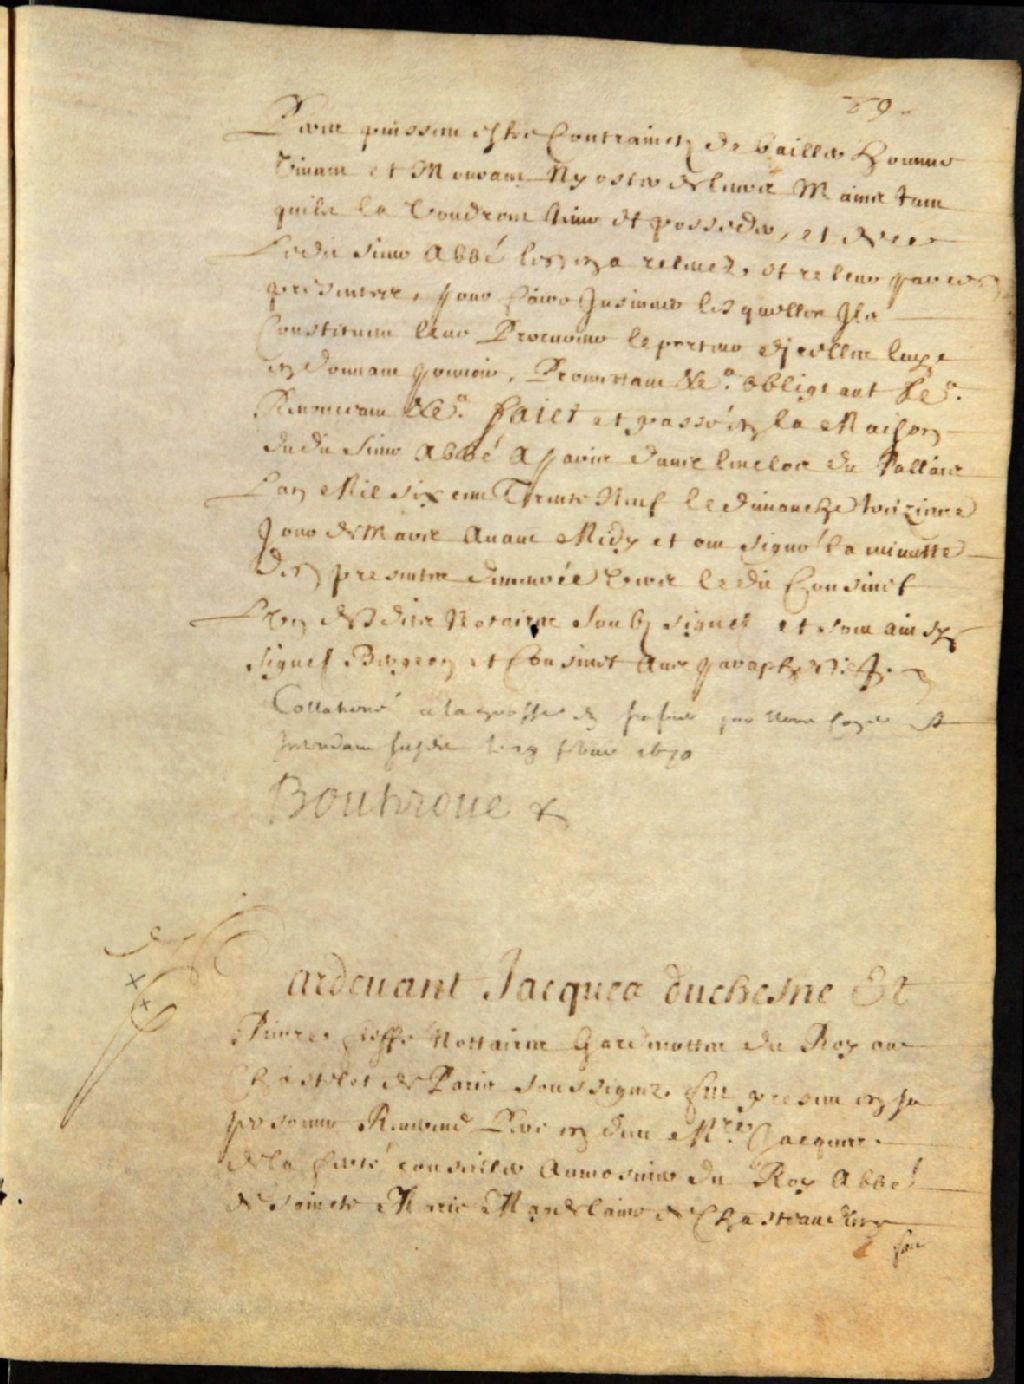 69.
Peres puissent estre Contrainctz de bailler homme
Vivant et Mourant Ny oster de leurs Mains tant
quilz la Voudront tenir et posseder, et dece
Ledit sieur Abbé les en a relevez, et releve par ces
presentes, pour faire Insinuer lesquelles Ilz
Constituent leur Procureur le porteur dicelles luy
en donnant pouvoir, Promettant &c.a obligeant &c.a
Renonceant &c.a faict et passé en la Maison
dudit sieur Abbé A paris dans lenclos du Pallais
Lan Mil six cent Trente Neuf le dimanche treiziesme
Jour de Mars Avant Midy et ont signé la minutte
Des presentes demeurée vers ledit Cousinet
Lun desdits Notaires soubz signez et sont ainsy
signez Bergeon et Cousinet Avec paraphes
Collationé a la grosse en par
Intendant 1670
Bouteroue
Pardevant Jacques duchesne Et
Pierre Nottaires Gardenottes du Roy au
Chastelet de Paris soussignez, fut present en sa
personne Reverend Pere en dieu M.re Jacques
de la ferté conseiller Aumosnier du Roy Abbé
de saincte Marie Magdelaine de Chasteaudun